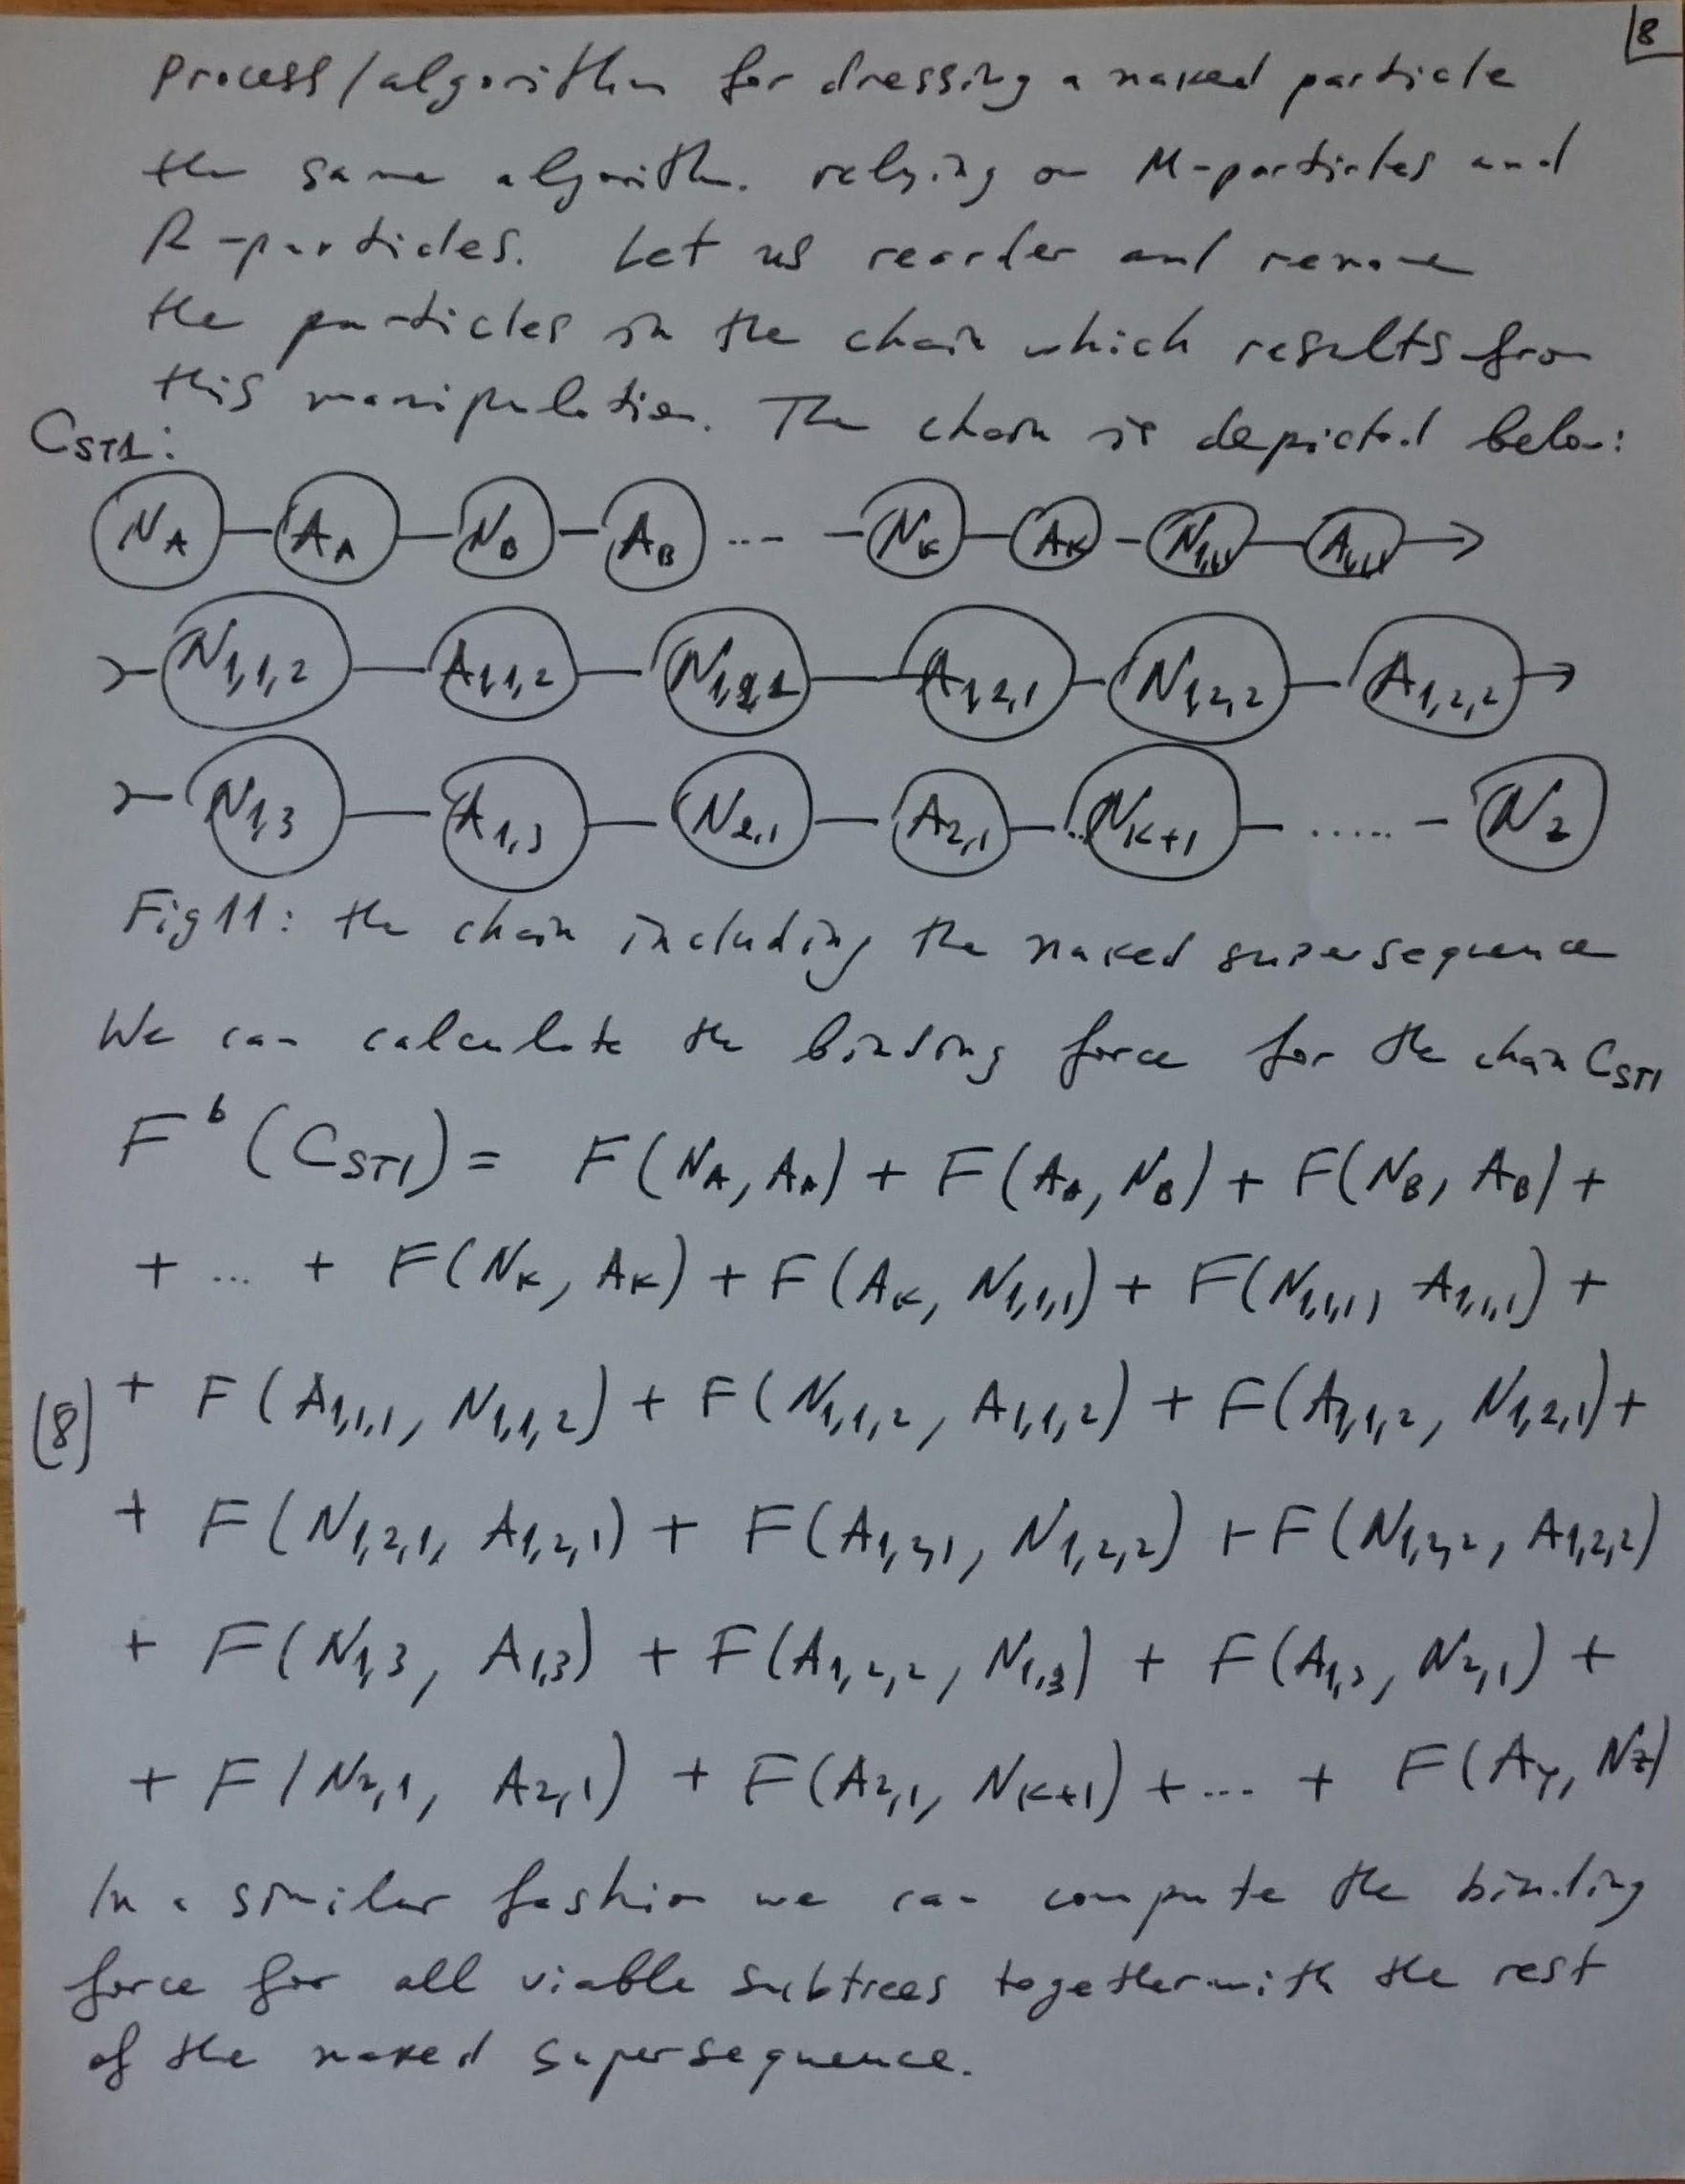 8
Process/algorithm for dressing a naked particle
the same algorithm. relying on M-particles and
R-particles. Let us reorder and rename
the particles in the chain which results from
this manipulation. The chain is depicted below:
C_ST1:
N_A — A_A — N_B — A_B ... — N_K — A_K — N_1,1,1 — A_1,1,1 →
>— N_1,1,2 — A_1,1,2 — N_1,2,1 — A_1,2,1 — N_1,2,2 — A_1,2,2 →
>— N_1,3 — A_1,3 — N_2,1 — A_2,1 — N_K+1 — ..... — N_Z
Fig 11: the chain including the naked supersequence
We can calculate the binding force for the chain C_ST1
F^b (C_ST1) = F(N_A, A_A) + F(A_A, N_B) + F(N_B, A_B) +
+ ... + F(N_K, A_K) + F(A_K, N_1,1,1) + F(N_1,1,1, A_1,1,1) +
(8) + F(A_1,1,1, N_1,1,2) + F(N_1,1,2, A_1,1,2) + F(A_1,1,2, N_1,2,1) +
+ F(N_1,2,1, A_1,2,1) + F(A_1,2,1, N_1,2,2) + F(N_1,2,2, A_1,2,2)
+ F(N_1,3, A_1,3) + F(A_1,2,2, N_1,3) + F(A_1,3, N_2,1) +
+ F(N_2,1, A_2,1) + F(A_2,1, N_K+1) + ... + F(A_Y, N_Z)
In a similar fashion we can compute the binding
force for all viable subtrees together with the rest
of the naked supersequence.